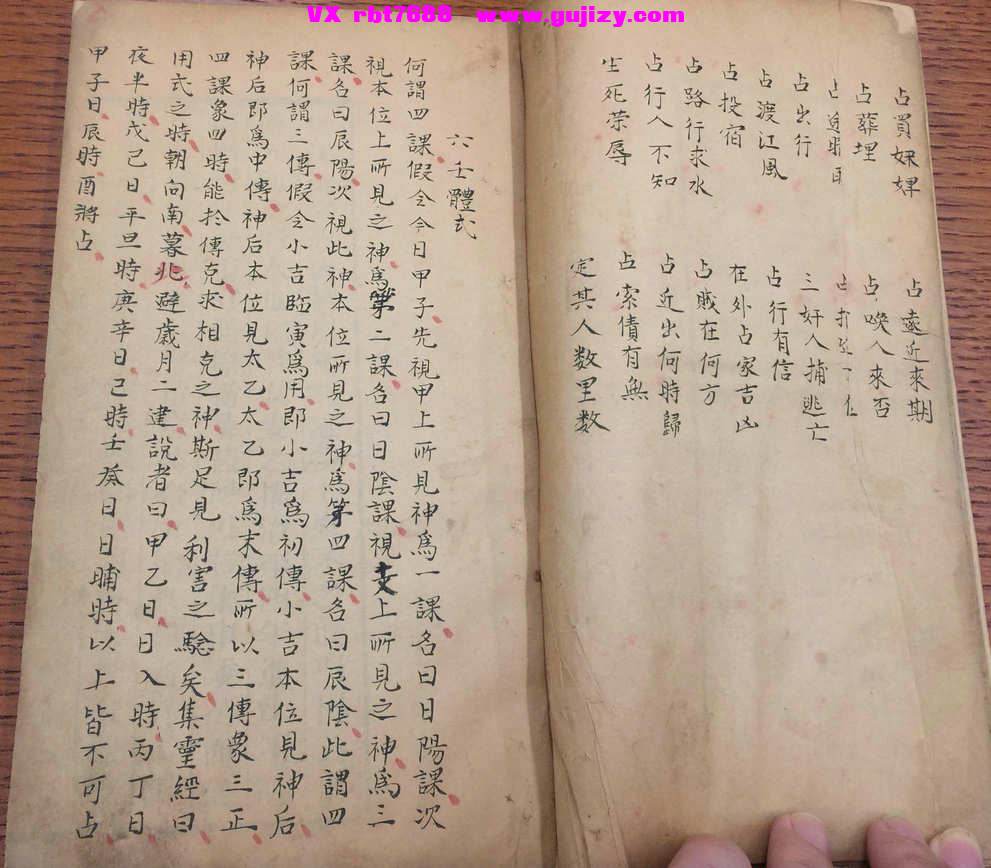 VX rbt7688 www.gujizy.com
占買婢婢
占葬埋
占出行
占渡江風
占投宿
占路行求水
占行人不知
生死荣辱
占遠近來期
占喚人來否
三奸人捕逃亡
占行有信
在外占家吉凶
占賊在何方
占近出何時歸
占索債有無
定其人数里数
六壬體式
何謂四課假令今日甲子先視甲上所見神爲一課名曰日陽課次
視本位上所見之神爲第二課名曰日陰課視支上所見之神爲三
課名曰辰陽次視此神本位所見之神爲第四課名曰辰陰此謂四
課何謂三傳假令小吉臨寅爲用即小吉爲初傳小吉本位見神后
神后即爲中傳神后本位見太乙太乙即爲末傳所以三傳象三正
四課象四時能於傳克求相克之神斯足見利害之驗矣集靈經曰
用式之時朝向南暮北避歲月二建說者曰甲乙日日入時丙丁日
夜半時戊己日平旦時庚辛日巳時壬癸日日晡時以上皆不可占
甲子日辰時酉將占